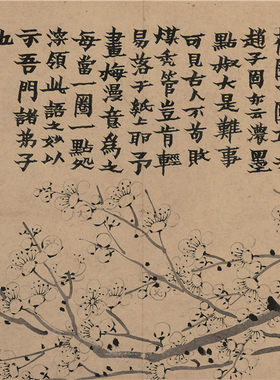 趙子固云濃墨
點椒大是難事
可見古人不苟𢾾
煤禿管豈肯輕
易落于紙上耶予
畫梅漫意為之
每當一圈一點處
深領此語之妙以
示吾門諸弟子
也